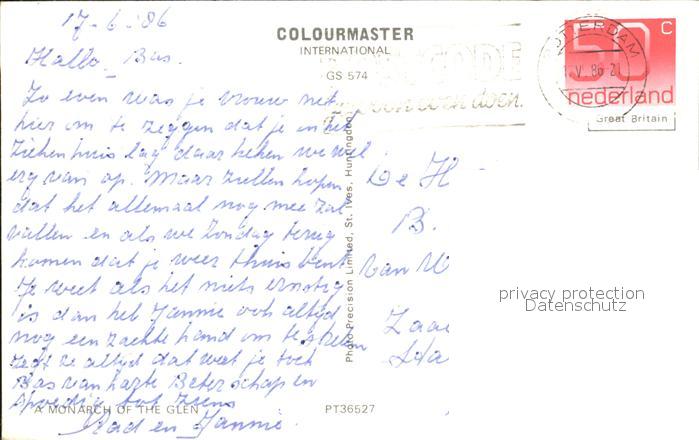 17-6-'86
COLOURMASTER
INTERNATIONAL
GS 574
Hallo Bas.
Zo even was je vrouw net
hier om te zeggen dat je in het
Ziekenhuis lag daar keken we wel
erg van op. Maar zullen hopen
dat het allemaal nog mee zal
vallen en als we Zondag terug
komen dat je weer thuis bent
Je weet als het niets ernstig
is dan het Jannie ook altijd
nog een zachte hand om te strelen
zegt ze altijd dat weet je toch
Bas van harte Beterschap en
spoedig tot ziens
Aad en Jannie.
ROTTERDAM
V 86 21
50 C
nederland
Great Britain
CODE
De H
B.
van
Zaa
privacy protection
Datenschutz
Photo Precision Limited, St. Ives, Huntingdon
A MONARCH OF THE GLEN
PT36527